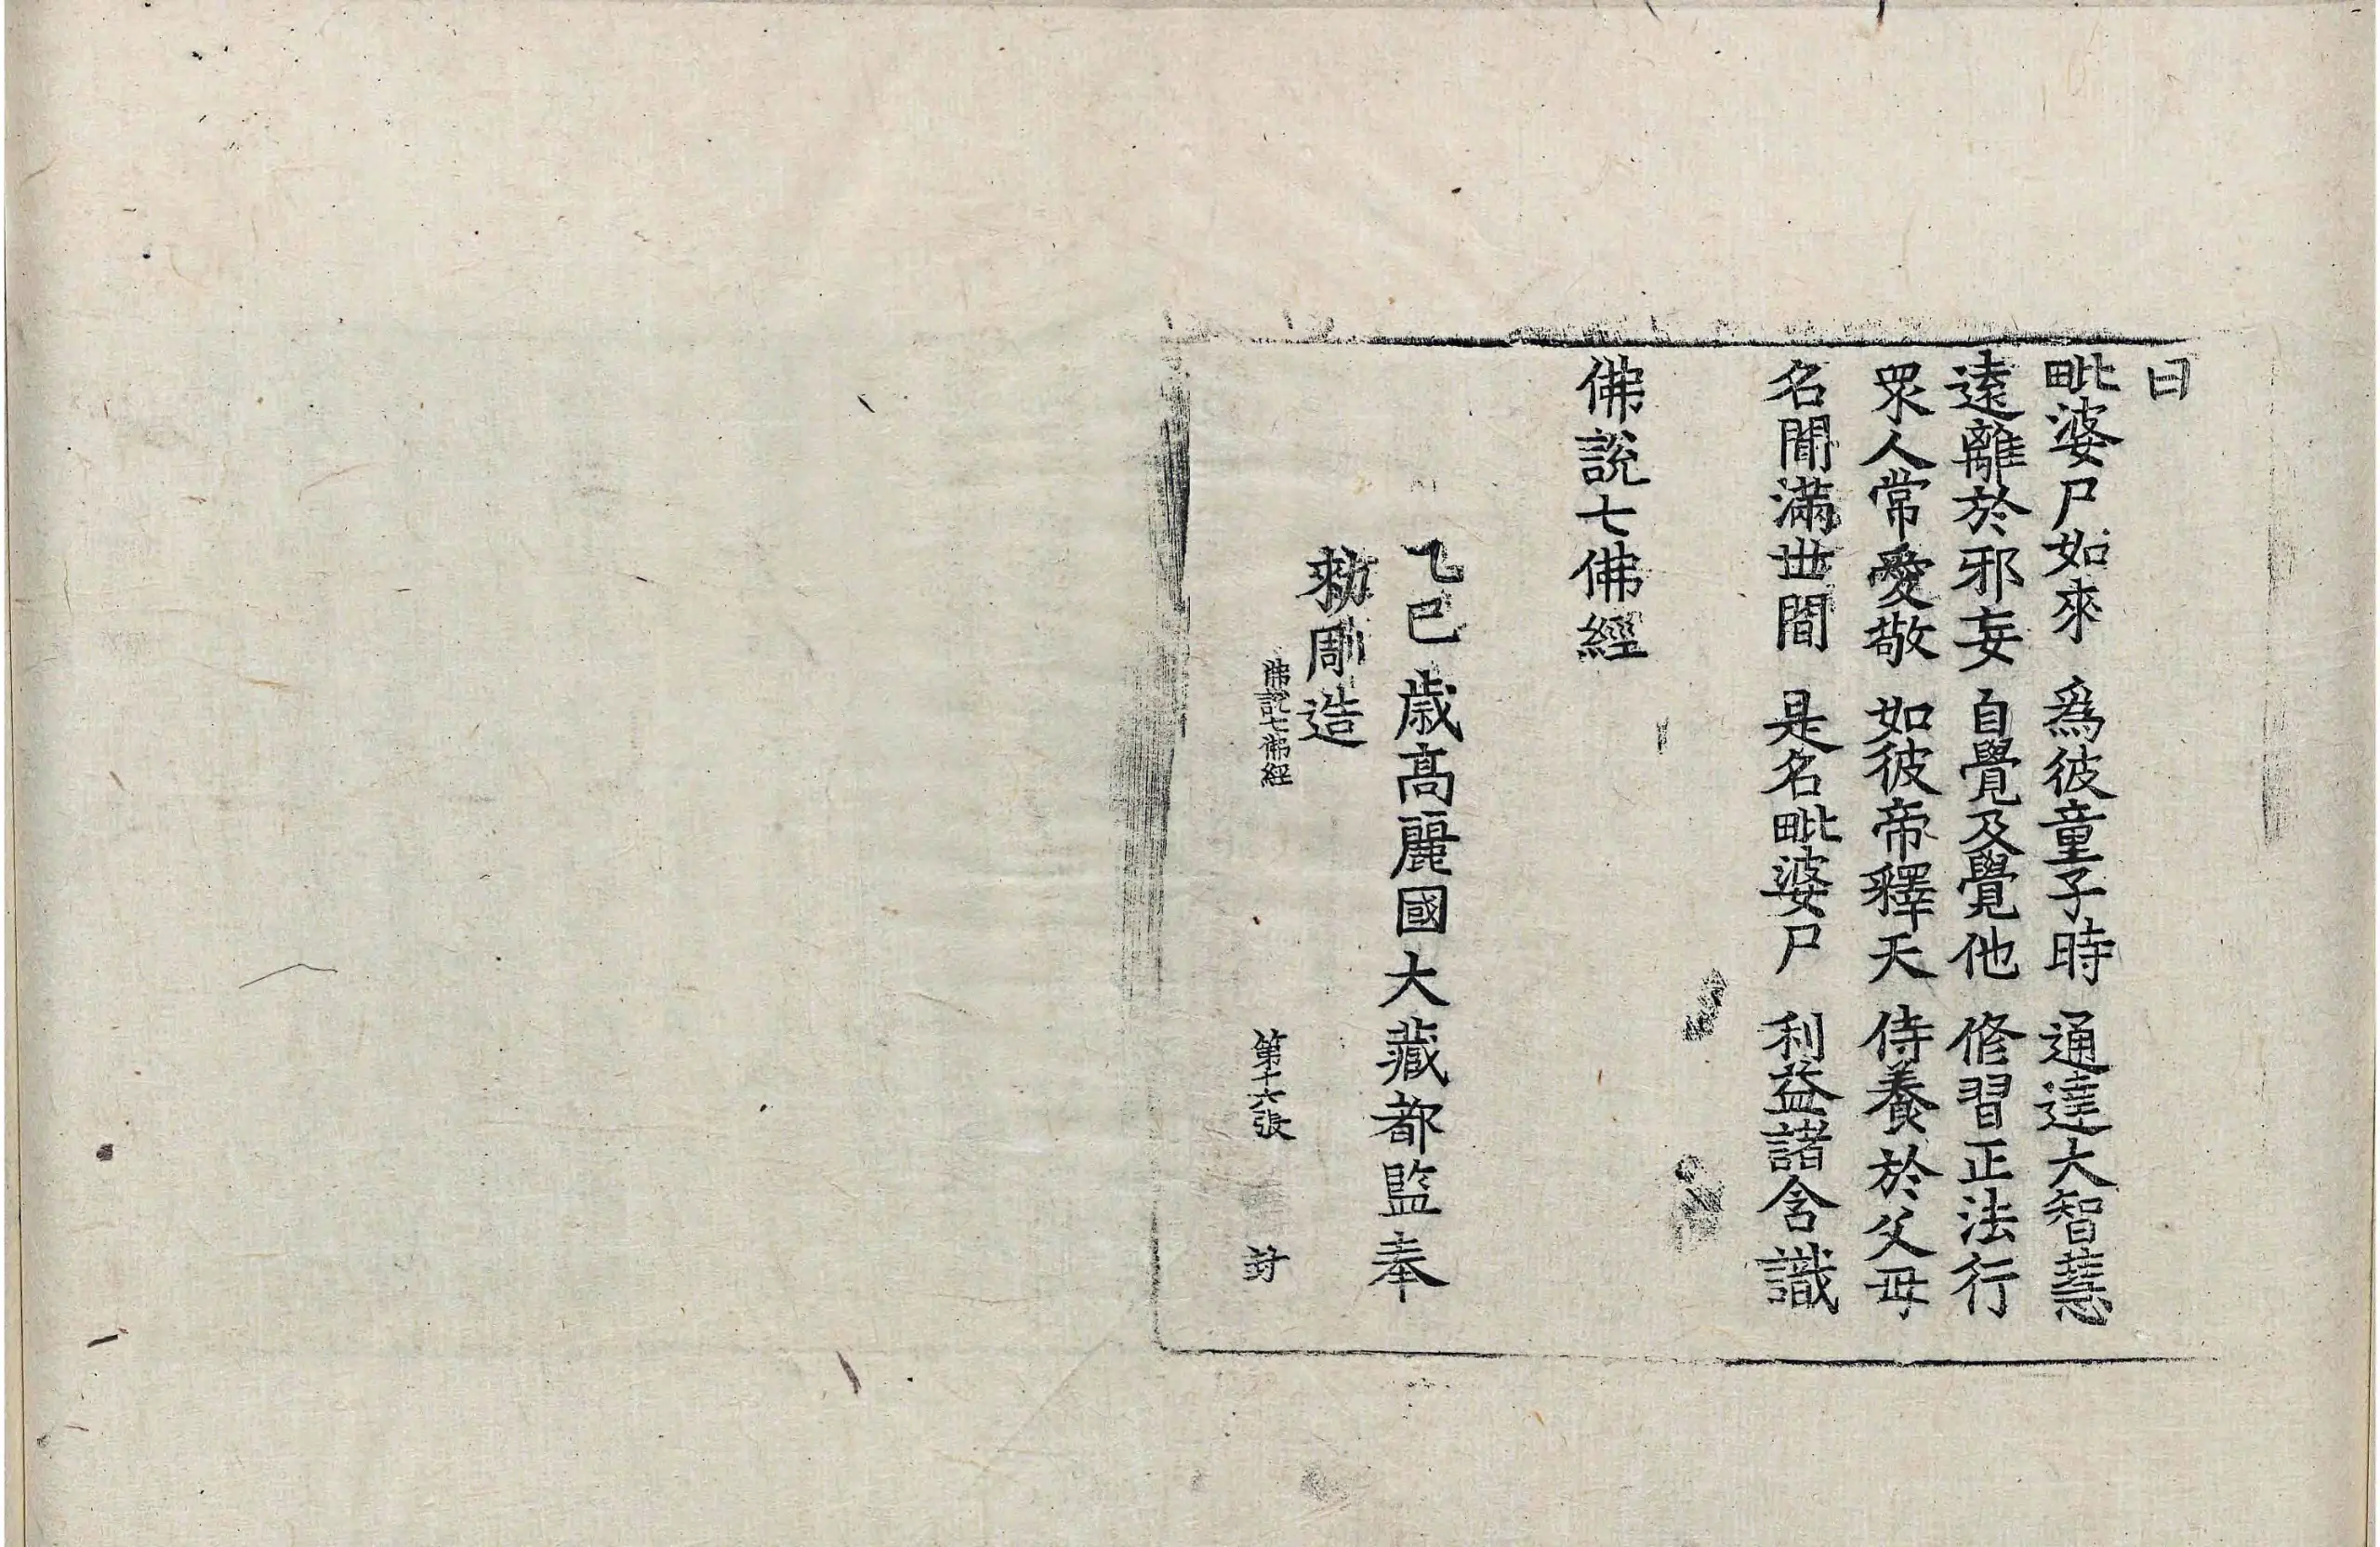 曰
毗婆尸如來　爲彼童子時　通達大智慧
遠離於邪妄　自覺及覺他　修習正法行
眾人常愛敬　如彼帝釋天　侍養於父母
名聞滿世間　是名毗婆尸　利益諸含識
佛說七佛經
乙巳歲高麗國大藏都監奉
勑彫造
佛說七佛經　第十六張　封